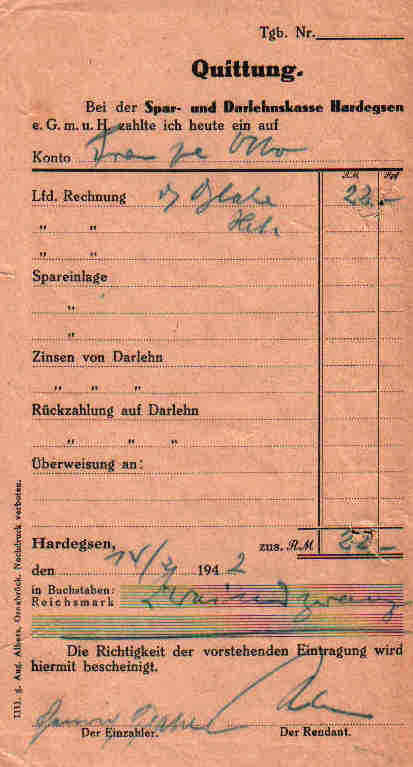 Tgb. Nr.
Quittung.
Bei der Spar- und Darlehnskasse Hardegsen
e. G. m. u. H. zahlte ich heute ein auf
Konto Otto
RM Rpf
Lfd. Rechnung 22.-
„ „
„ „
Spareinlage
„
„
Zinsen von Darlehn
„ „ „
Rückzahlung auf Darlehn
„ „ „
Überweisung an:
Hardegsen, zus. RM 22 -
den 14/ 1942
in Buchstaben:
Reichsmark Zweiundzwanzig
Die Richtigkeit der vorstehenden Eintragung wird
hiermit bescheinigt.
Der Einzahler. Der Rendant.
1111. g. Aug. Albers, Osnabrück. Nachdruck verboten.